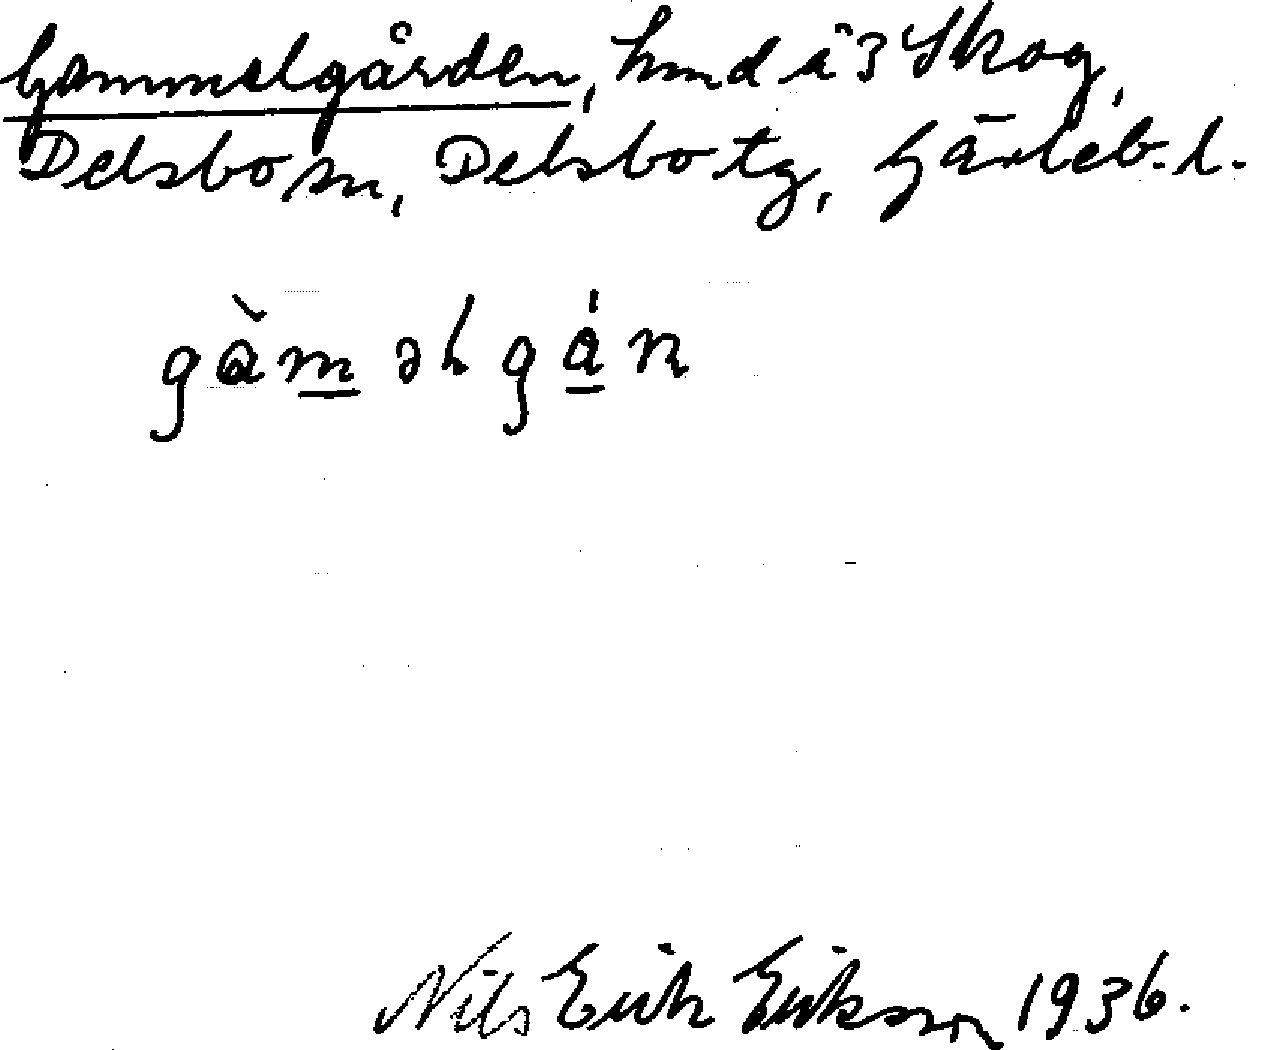 Gammelgården, hmd å 3 Skog,
Delsbo sn, Delsbo tg, Gävleb. l.
gàməlgá̱n
Nils Erik Erikson 1936.